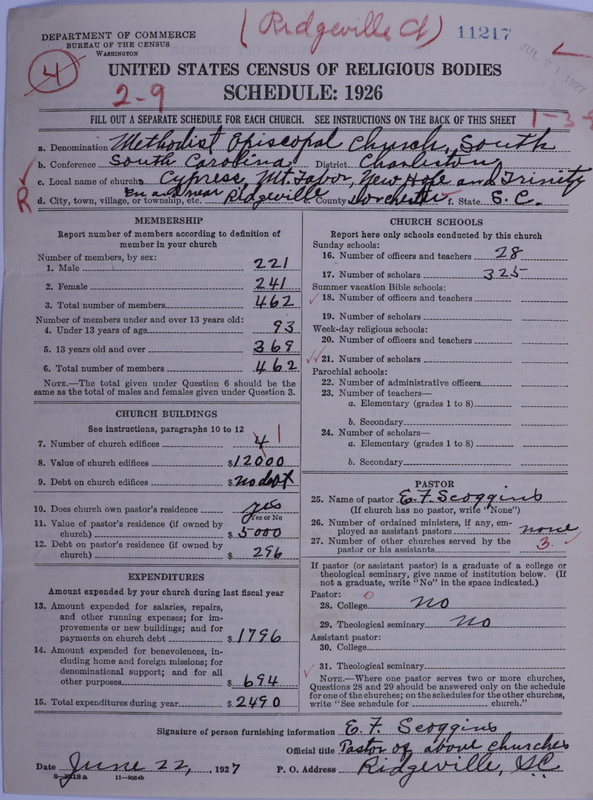 (Ridgeville Ct)
11217
DEPARTMENT OF COMMERCE
BUREAU OF THE CENSUS
WASHINGTON
JUL 21 1927
4
UNITED STATES CENSUS OF RELIGIOUS BODIES
2-9
SCHEDULE: 1926
FILL OUT A SEPARATE SCHEDULE FOR EACH CHURCH. SEE INSTRUCTIONS ON THE BACK OF THIS SHEET
1-3-
a. Denomination Methodist Episcopal Church, South
b. Conference South Carolina District Charleston
c. Local name of church Cypress, Mt. Tabor, New Hope and Trinity
R
d. City, town, village, or township, etc. In and near Ridgeville e. County Dorchester f. State S.C.
MEMBERSHIP
Report number of members according to definition of member in your church
Number of members, by sex:
1. Male 221
2. Female 241
3. Total number of members 462
Number of members under and over 13 years old:
4. Under 13 years of age 93
5. 13 years old and over 369
6. Total number of members 462
NOTE.—The total given under Question 6 should be the same as the total of males and females given under Question 3.
CHURCH BUILDINGS
See instructions, paragraphs 10 to 12
7. Number of church edifices 4 1
8. Value of church edifices $12000
9. Debt on church edifices $ no debt
10. Does church own pastor's residence yes
Yes or No
11. Value of pastor's residence (if owned by church) $5000
12. Debt on pastor's residence (if owned by church) $296
EXPENDITURES
Amount expended by your church during last fiscal year
13. Amount expended for salaries, repairs, and other running expenses; for improvements or new buildings; and for payments on church debt $1796
14. Amount expended for benevolences, including home and foreign missions; for denominational support; and for all other purposes $694
15. Total expenditures during year $2490
CHURCH SCHOOLS
Report here only schools conducted by this church
Sunday schools:
16. Number of officers and teachers 28
17. Number of scholars 325
Summer vacation Bible schools:
18. Number of officers and teachers
19. Number of scholars
Week-day religious schools:
20. Number of officers and teachers
21. Number of scholars
Parochial schools:
22. Number of administrative officers
23. Number of teachers—
a. Elementary (grades 1 to 8)
b. Secondary
24. Number of scholars—
a. Elementary (grades 1 to 8)
b. Secondary
PASTOR
25. Name of pastor E. F. Scoggins
(If church has no pastor, write "None")
26. Number of ordained ministers, if any, employed as assistant pastors none
27. Number of other churches served by the pastor or his assistants 3
If pastor (or assistant pastor) is a graduate of a college or theological seminary, give name of institution below. (If not a graduate, write "No" in the space indicated.)
Pastor: 0
28. College no
29. Theological seminary no
Assistant pastor:
30. College
31. Theological seminary
NOTE.—Where one pastor serves two or more churches, Questions 28 and 29 should be answered only on the schedule for one of the churches; on the schedules for the other churches, write "See schedule for church."
Signature of person furnishing information E. F. Scoggins
Official title Pastor of above churches
Date June 22, 1927 P. O. Address Ridgeville, S.C.